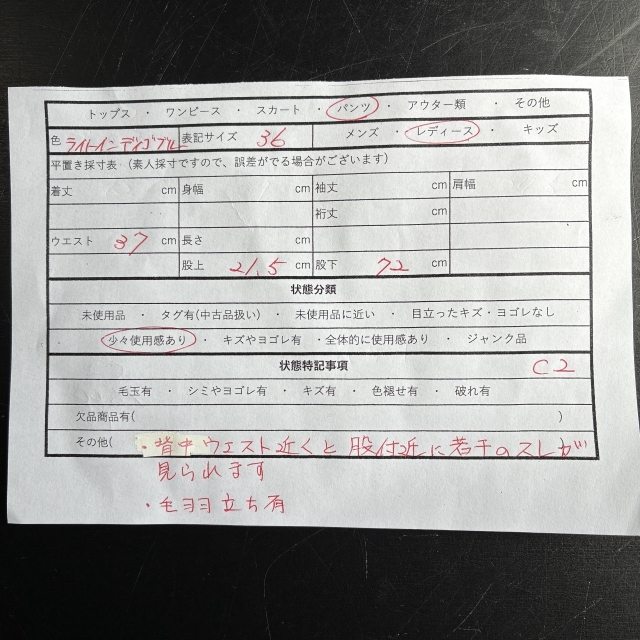 トップス ・ ワンピース ・ スカート ・ パンツ ・ アウター類 ・ その他
色 ライトインディゴブルー 表記サイズ 36 メンズ ・ レディース ・ キッズ
平置き採寸表（素人採寸ですので、誤差がでる場合がございます）
着丈 cm 身幅 cm 袖丈 cm 肩幅 cm
裄丈 cm
ウエスト 37 cm 長さ
股上 21.5 cm 股下 72 cm
状態分類
未使用品 ・ タグ有(中古品扱い) ・ 未使用品に近い ・ 目立ったキズ・ヨゴレなし
少々使用感あり ・ キズやヨゴレ有 ・全体的に使用感あり ・ ジャンク品
状態特記事項 C2
毛玉有 ・ シミやヨゴレ有 ・ キズ有 ・ 色褪せ有 ・ 破れ有
欠品商品有( )
その他( ・背中ウエスト近くと股付近に若干のスレが
見られます
・毛羽立ち有